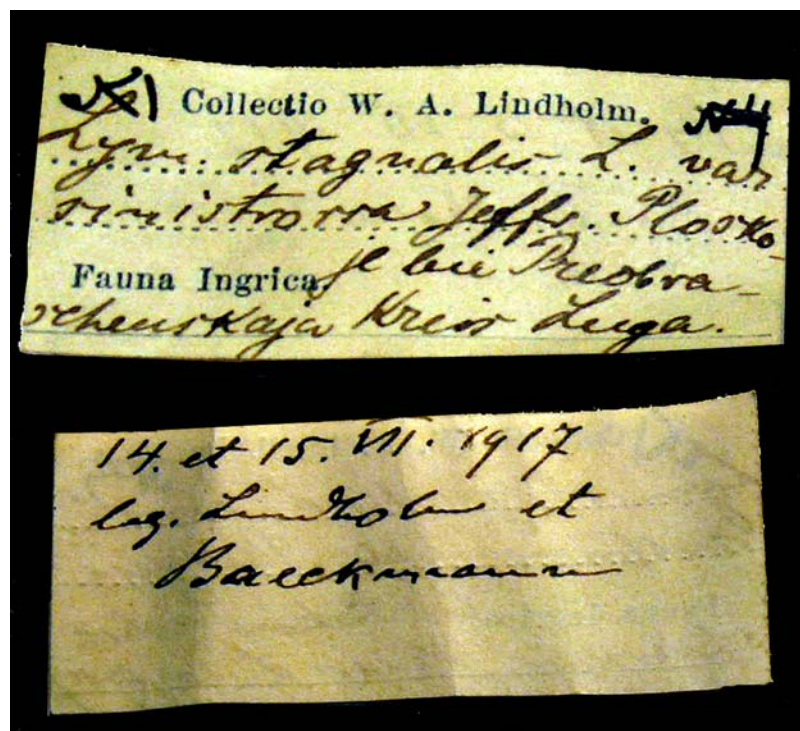 Collectio W. A. Lindholm.
Lym. stagnalis L. var
sinistrorsa Jeffr. Plosko-
Fauna Ingrica. je bei Preobra-
schenskaja Kreis Luga.
14. et 15. VII. 1917
leg. Lindholm et
Baeckmann